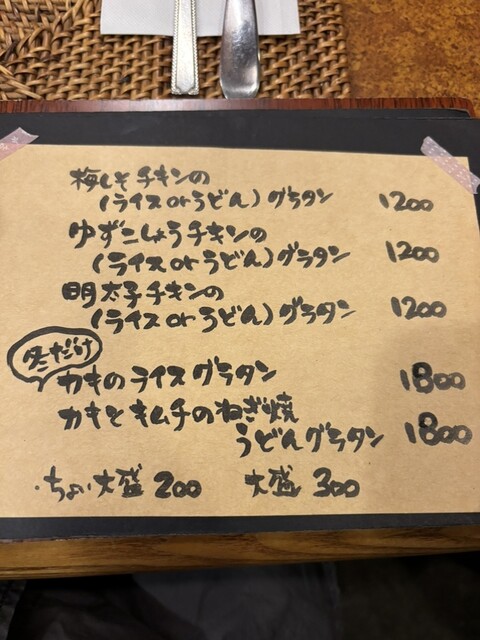 梅しそチキンの
(ライスorうどん)グラタン 1200
ゆずこしょうチキンの
(ライスorうどん)グラタン 1200
明太子チキンの
(ライスorうどん)グラタン 1200
冬だけ
カキのライスグラタン 1800
カキとキムチのねぎ焼
うどんグラタン 1800
・ちょい大盛 200 大盛 300